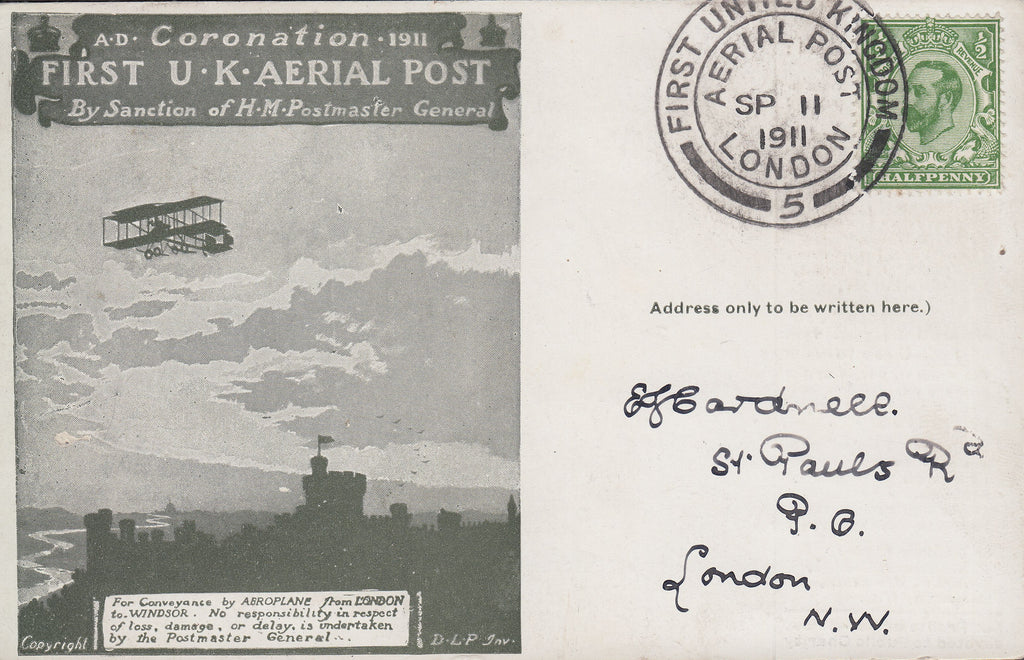 A·D· Coronation · 1911
FIRST U·K·AERIAL POST
By Sanction of H·M·Postmaster General
For Conveyance by AEROPLANE from LONDON
to WINDSOR. No responsibility in respect
of loss, damage, or delay, is undertaken
by the Postmaster General.
Copyright
D·L·P Inv·
FIRST UNITED KINGDOM
AERIAL POST
SP 11
1911
LONDON
5
REVENUE
½
HALFPENNY
Address only to be written here.)
EJ Cardnell.
St Pauls Rd
P.O.
London
N.W.